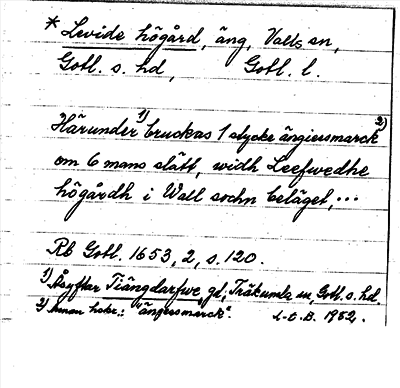 * Levide högård, äng, Valls sn,
Gotl. s. hd, Gotl. l.
Härunder 1) bruckas 1 stycke ängiersmarck 2)
om 6 mans slätt, widh Leefwedhe
högårdh i Wall sochn beläget, ...
Rb Gotl. 1653, 2, s. 120.
1) Åsyftar Tiängdarfwe, gd, Träkumla sn, Gotl. s. hd.
2) Annan hskr.: "ängersmarck". I.-E.B. 1952.